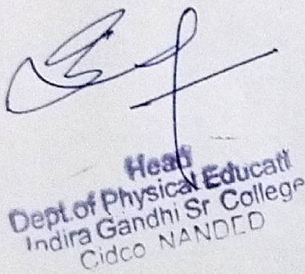 Head
Dept.of Physical Educati
Indira Gandhi Sr College
Cidco NANDED